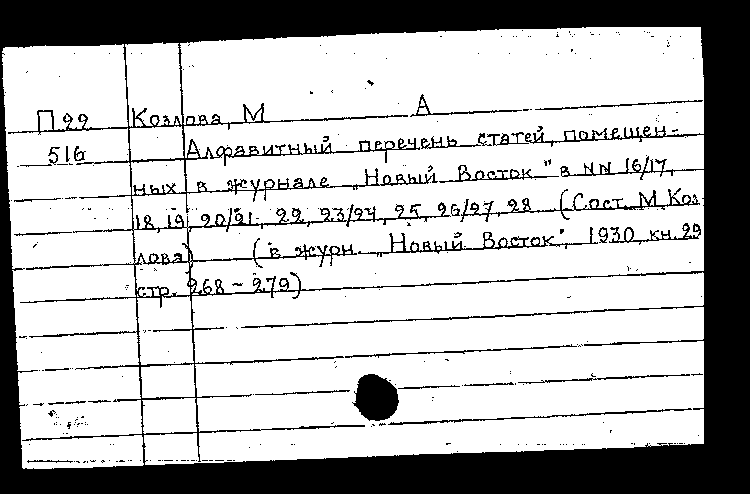 П22 Козлова, М А
516 Алфавитный перечень статей, помещен-
ных в журнале „Новый Восток" в NN 16/17,
18, 19, 20/21, 22, 23/24, 25, 26/27, 28 (Сост. М. Коз
лова) (в журн. „Новый Восток", 1930, кн. 29
стр. 268 - 279)